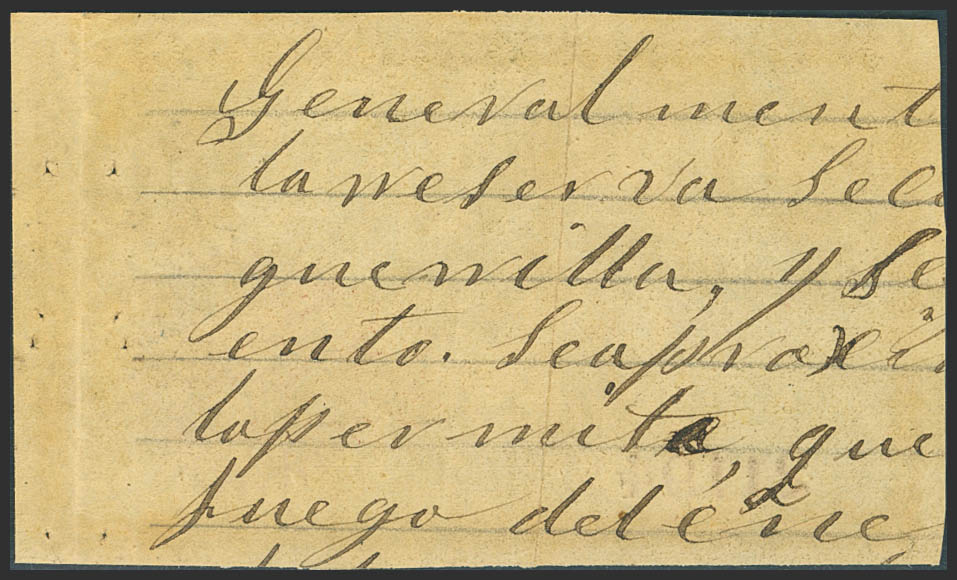 General ment
la rreserva Se
guerrilla, y Se
ento. Se aproxi
lo permite, que
fuego del ene